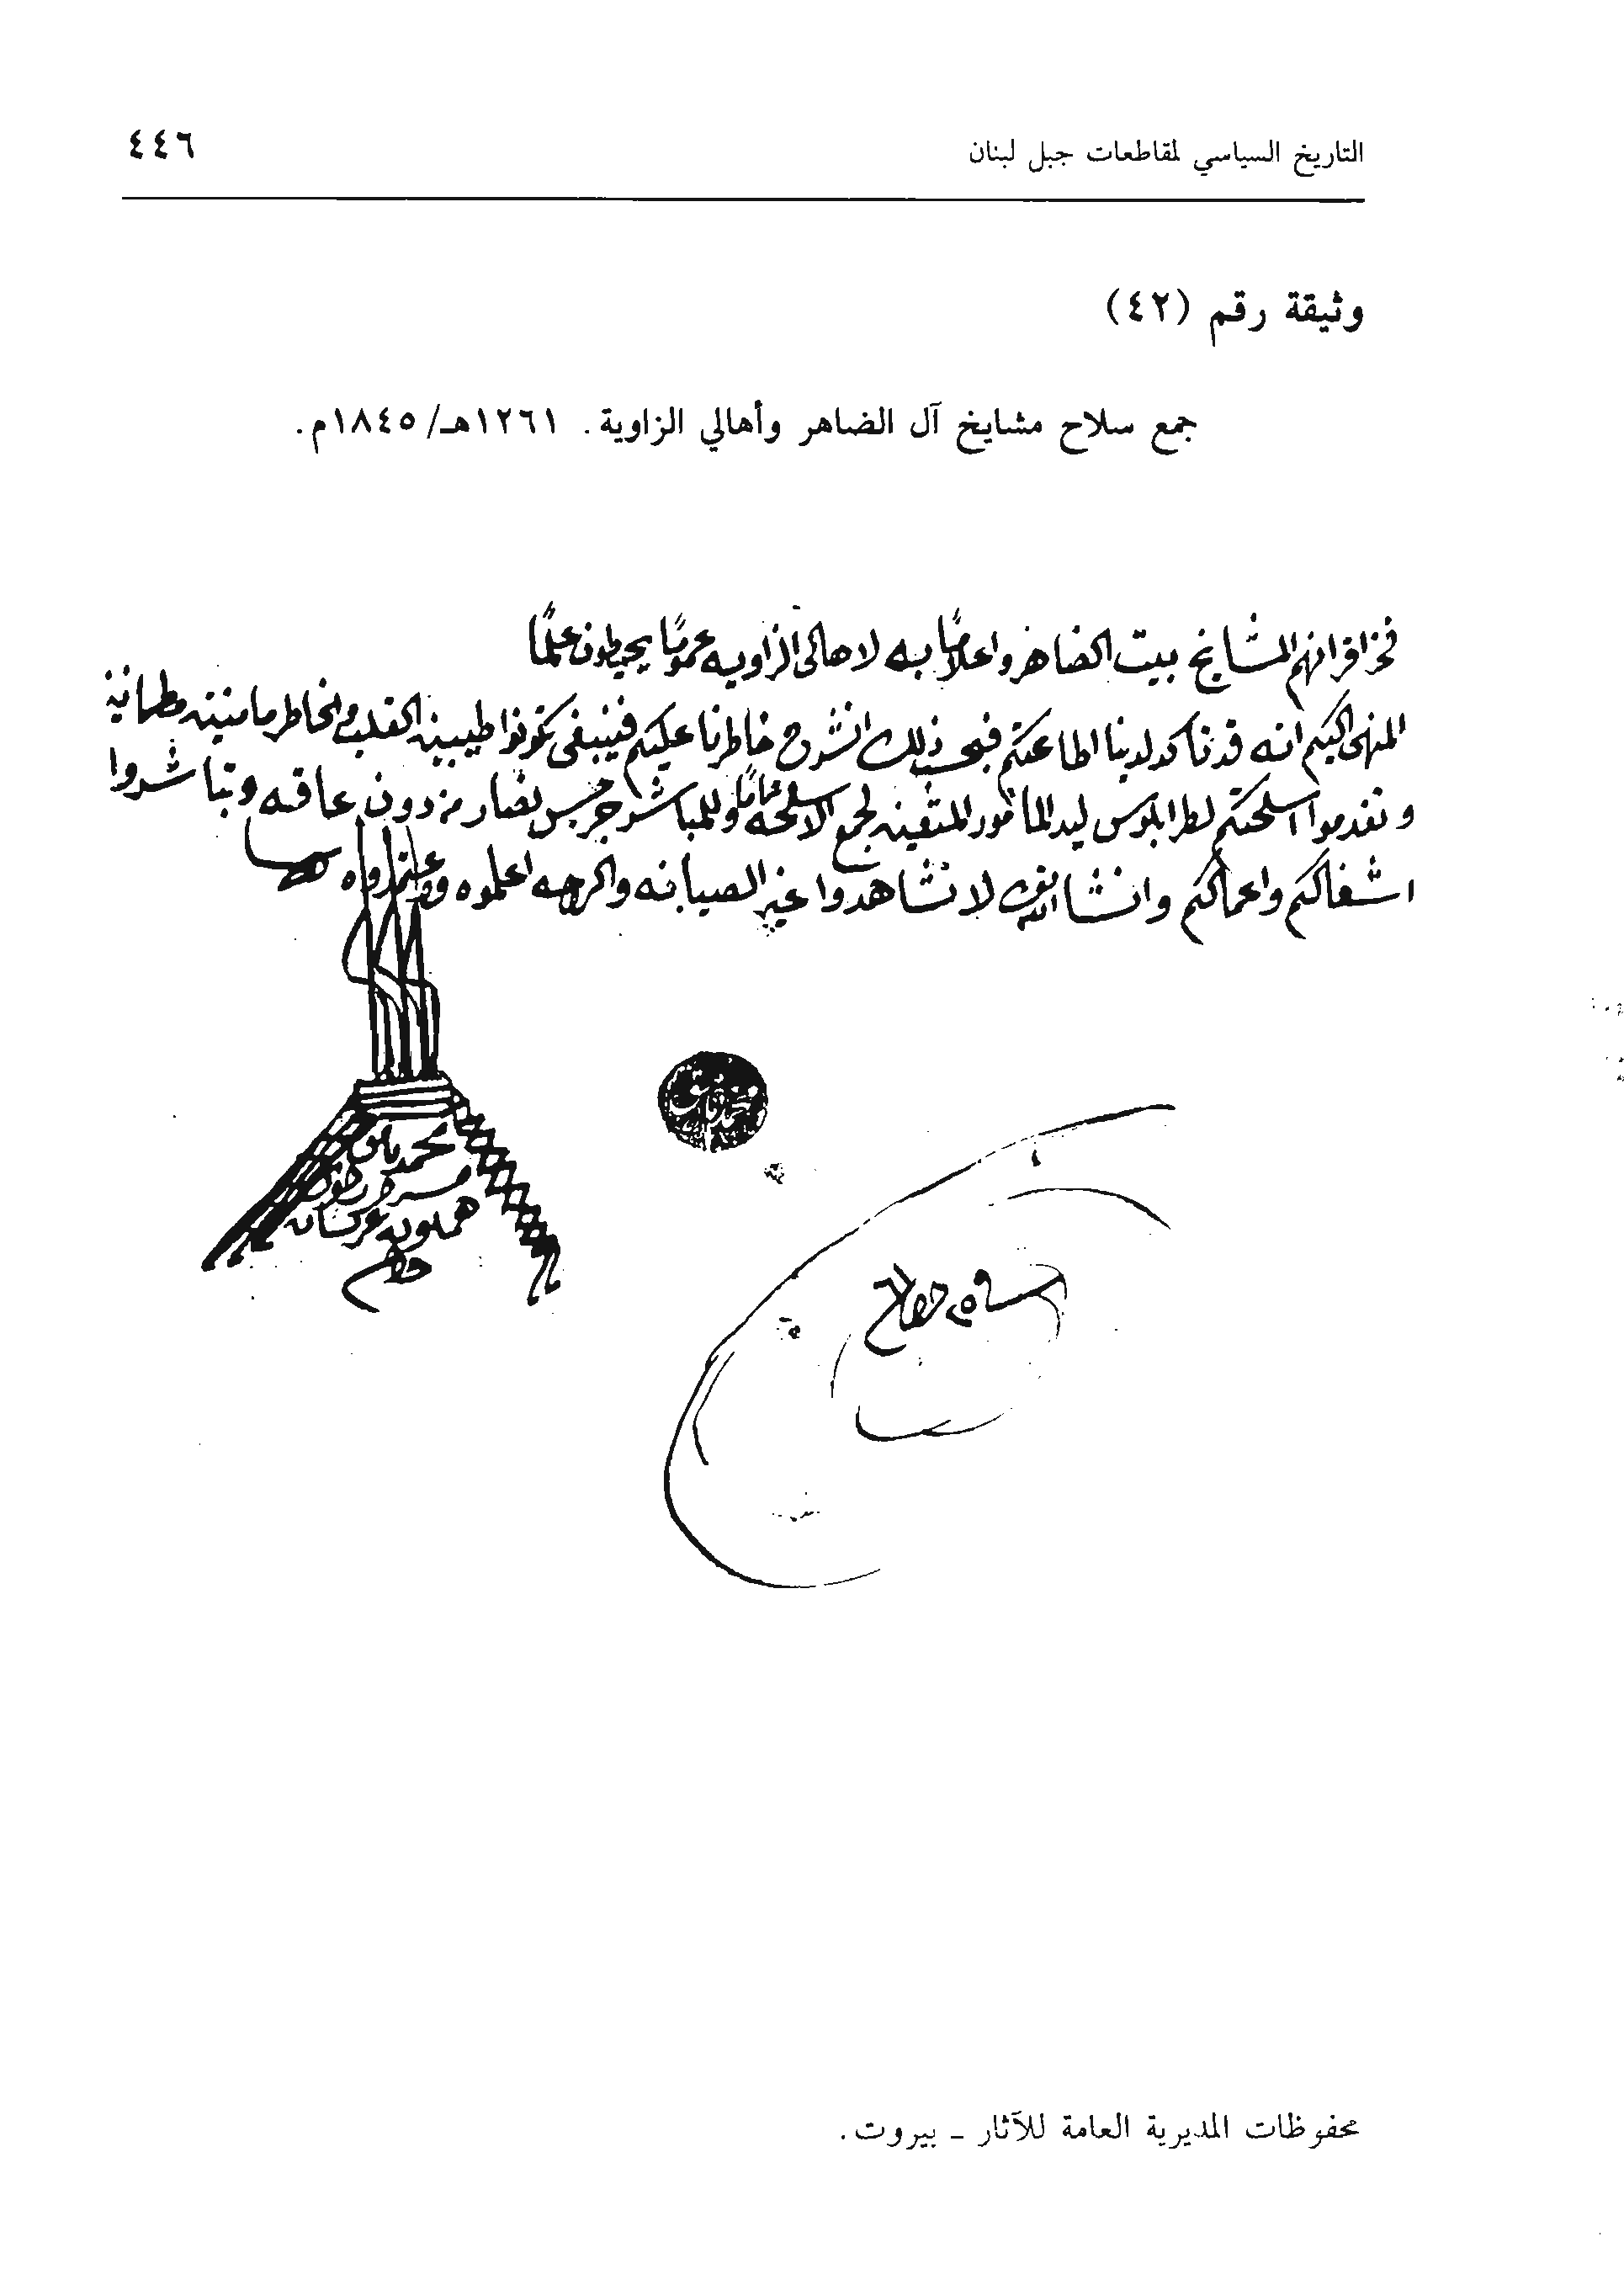 التاريخ السياسي لمقاطعات جبل لبنان ٤٤٦
وثيقة رقم (٤٢)
جمع سلاح مشايخ آل الضاهر وأهالي الزاوية. ١٢٦١هـ/١٨٤٥م.
فخر اقرانهم المشايخ بيت الضاهر واعلامًا به لاهالى الزاويه عمومًا يحيطون علمًا
المنهى اليكم انه قد تاكد لدينا اطاعتكم فبحسب ذلك انشرح خاطرنا عليكم فينبغى تكونوا طيبين القلب والخاطر مامنين مطمانين
وتقدموا اسلحتكم لطرابلوس ليد المأمور المتقين لجمع الاسلحه تمامًا وللمباشر جرجس نصار من دون عاقه وتباشروا
اشغالكم واعمالكم وانشا الله لا تشاهدوا غير الصيانه والمرحمه اعلموه واعتمدوه
محمد
محفوظات المديرية العامة للآثار - بيروت.